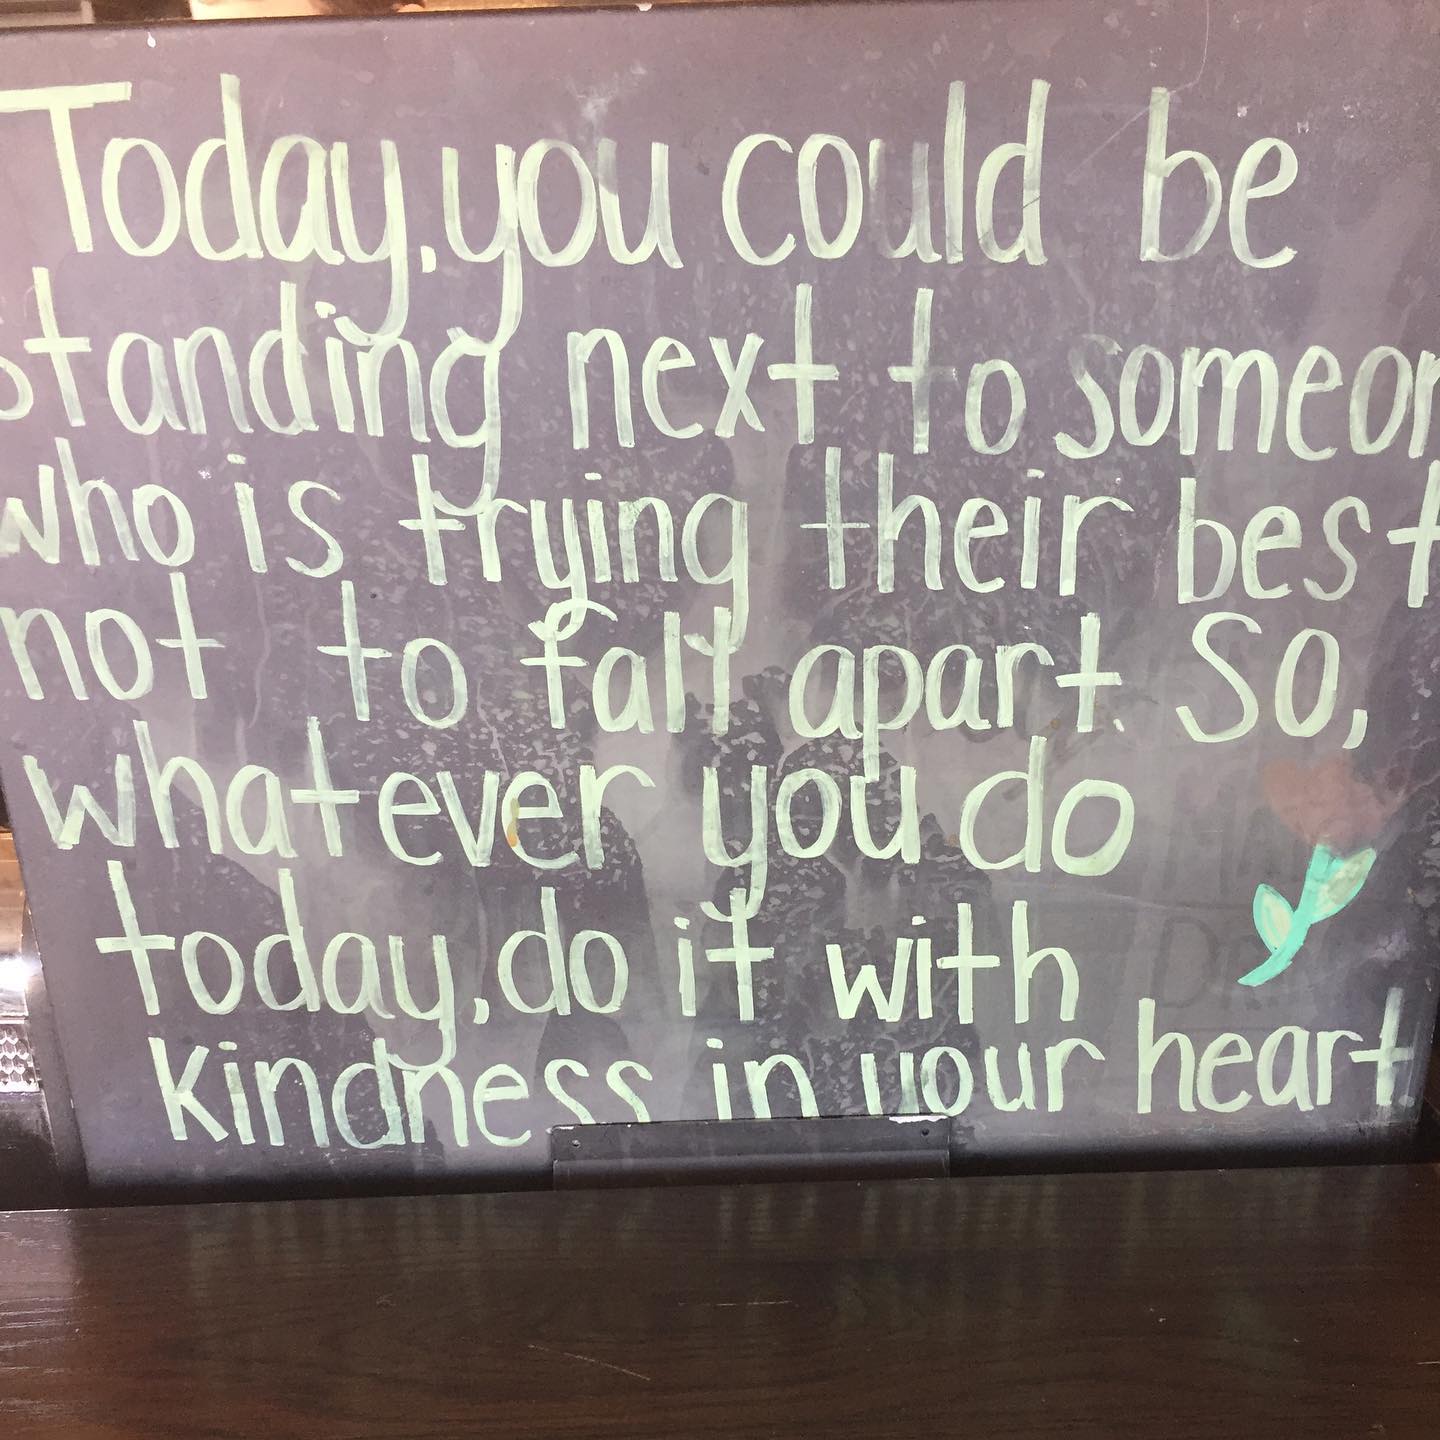 Today, you could be
standing next to someon
who is trying their best
not to fall apart. So,
whatever you do
today, do it with
kindness in your heart.